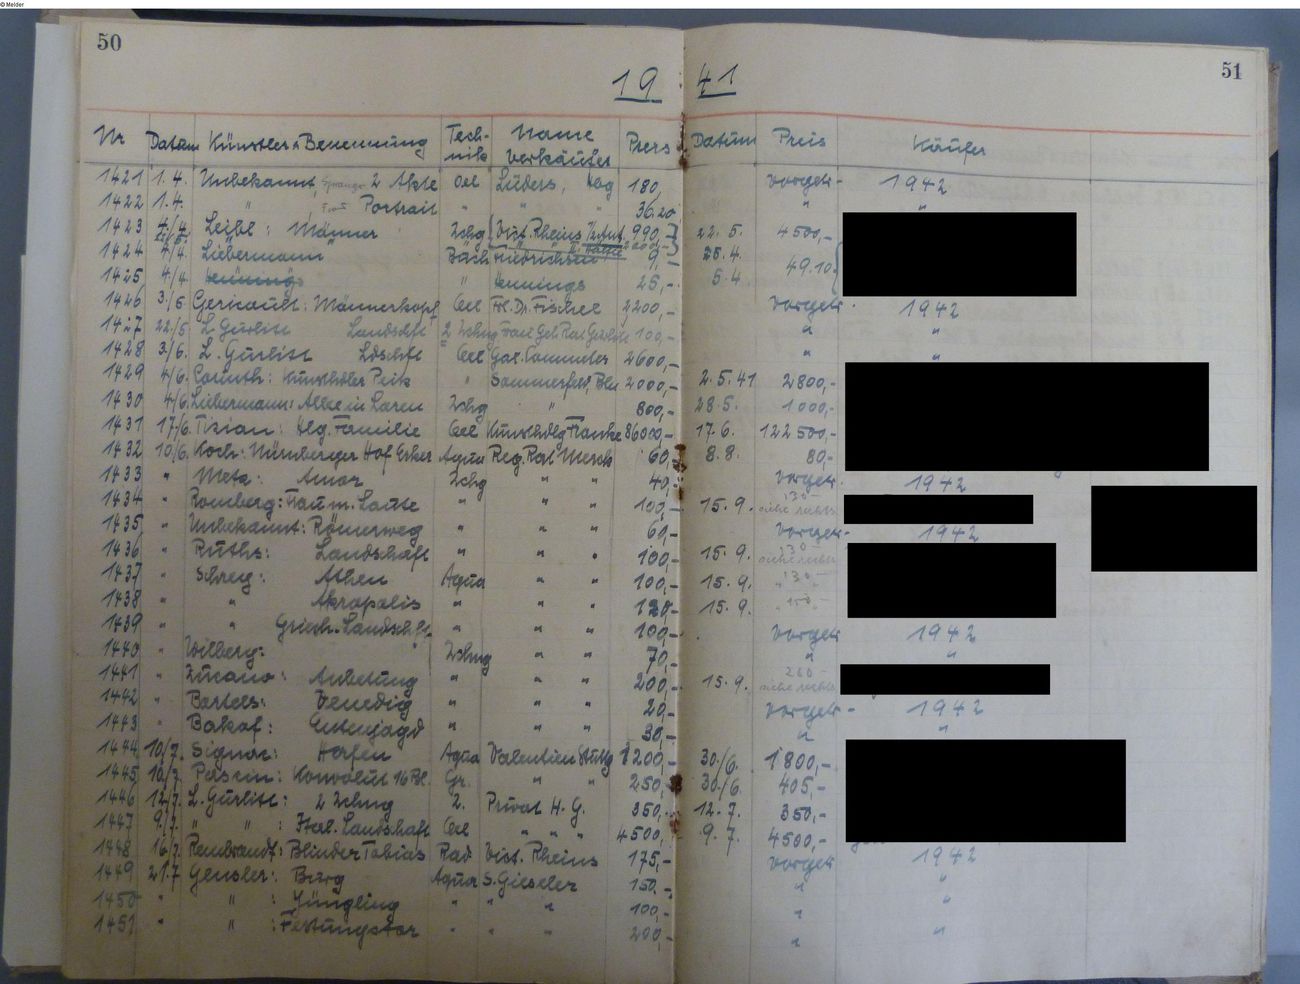 © Melder
50
51
19 41
Nr Datum Künstler u. Benennung Technik Name Verkäufer Preis Datum Preis Käufer
1421 1.4. Unbekannt, 2 Akte Oel Lüders, Hbg 180, vorgetr. 1942
1422 1.4. " , Portrait " " " 36.20 " "
1423 4/4. Leibl: Männer Zchg Vict. Rheins 990,- 22.5. 4500,-
1424 4/4. Liebermann Buch Friedrichsen 9,- 25.4. 49.10
1425 4/4. Hennings " Hennings 25,- 5.4
1426 3/6 Gericault: Männerkopf Oel Fr. Dr. Fischel 2200,- vorgetr. 1942
1427 22/5 L. Gurlitt Landschft 2 Zchng Frau Geh Rat Gurlitt 100,- " "
1428 3/6. L. Gurlitt Ldschft Oel Gal. Commeter 2600,- " "
1429 4/6. Corinth: Kunsthdler Peik " Sommerfeld, Bln 2000,- 2.5.41 2800,-
1430 4/6. Liebermann: Allee in Laren Zchg " 800,- 28.5. 1000,-
1431 17/6. Tizian: Hlg. Familie Oel Kunsthdlg Franke 86000,- 17.6. 122500,-
1432 10/6. Koch: Nürnberger Hof Erker Aqua Reg. Rat 60,- 8.8. 80,-
1433 " Metz: Amor Zchg " " 40,- vorgetr. 1942
1434 " Romberg: Frau m. Laute " " " 100,- 15.9. 130- siehe rechts
1435 " Unbekannt: Römerweg " " " 60,- vorgetr- 1942
1436 " Ruths: Landschaft " " " 100,- 15.9. 130- siehe rechts
1437 " Athen Aqua " " 100,- 15.9. 130- " "
1438 " " Akropolis " " " 120,- 15.9. 150- " "
1439 " " Griech. Landschft. " " " 100,- vorgetr 1942
1440 " Wilberg: Zchng " " 70,- " "
1441 " Anbetung " " " 200,- 15.9. 260- siehe rechts
1442 " Bartels: Venedig " " " 20,- vorgetr- 1942
1443 " Entenjagd " " " 30,- " "
1444 10/7. Signac: Hafen Aqua Valentien Stuttg 1200,- 30./6. 1800,-
1445 10/7. Pascin: Konvolut 16 Bl. Gr. " " 250,- 30./6. 405,-
1446 12/7. L. Gurlitt: 2 Zchng Z. Privat H. G. 350,- 12.7. 350,-
1447 9/7. " " : Ital. Landschaft Oel " " " 4500,- 9.7. 4500,-
1448 16/7. Rembrandt: Blinder Tobias Rad Vict. Rheins 175,- vorgetr 1942
1449 21.7 Gensler: Burg Aqua S. Gieseler 150.- " "
1450 " " : Jüngling " " " 100,- " "
1451 " " : Festungstor " " " 200,- " "